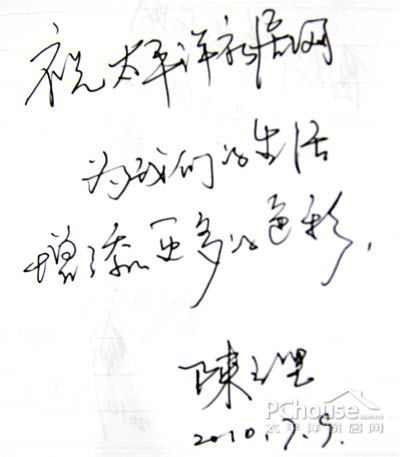 祝太平洋家居网
为我们的生活
增添更多的色彩,
陳
2010.7.9.
PChouse
太平洋家居网